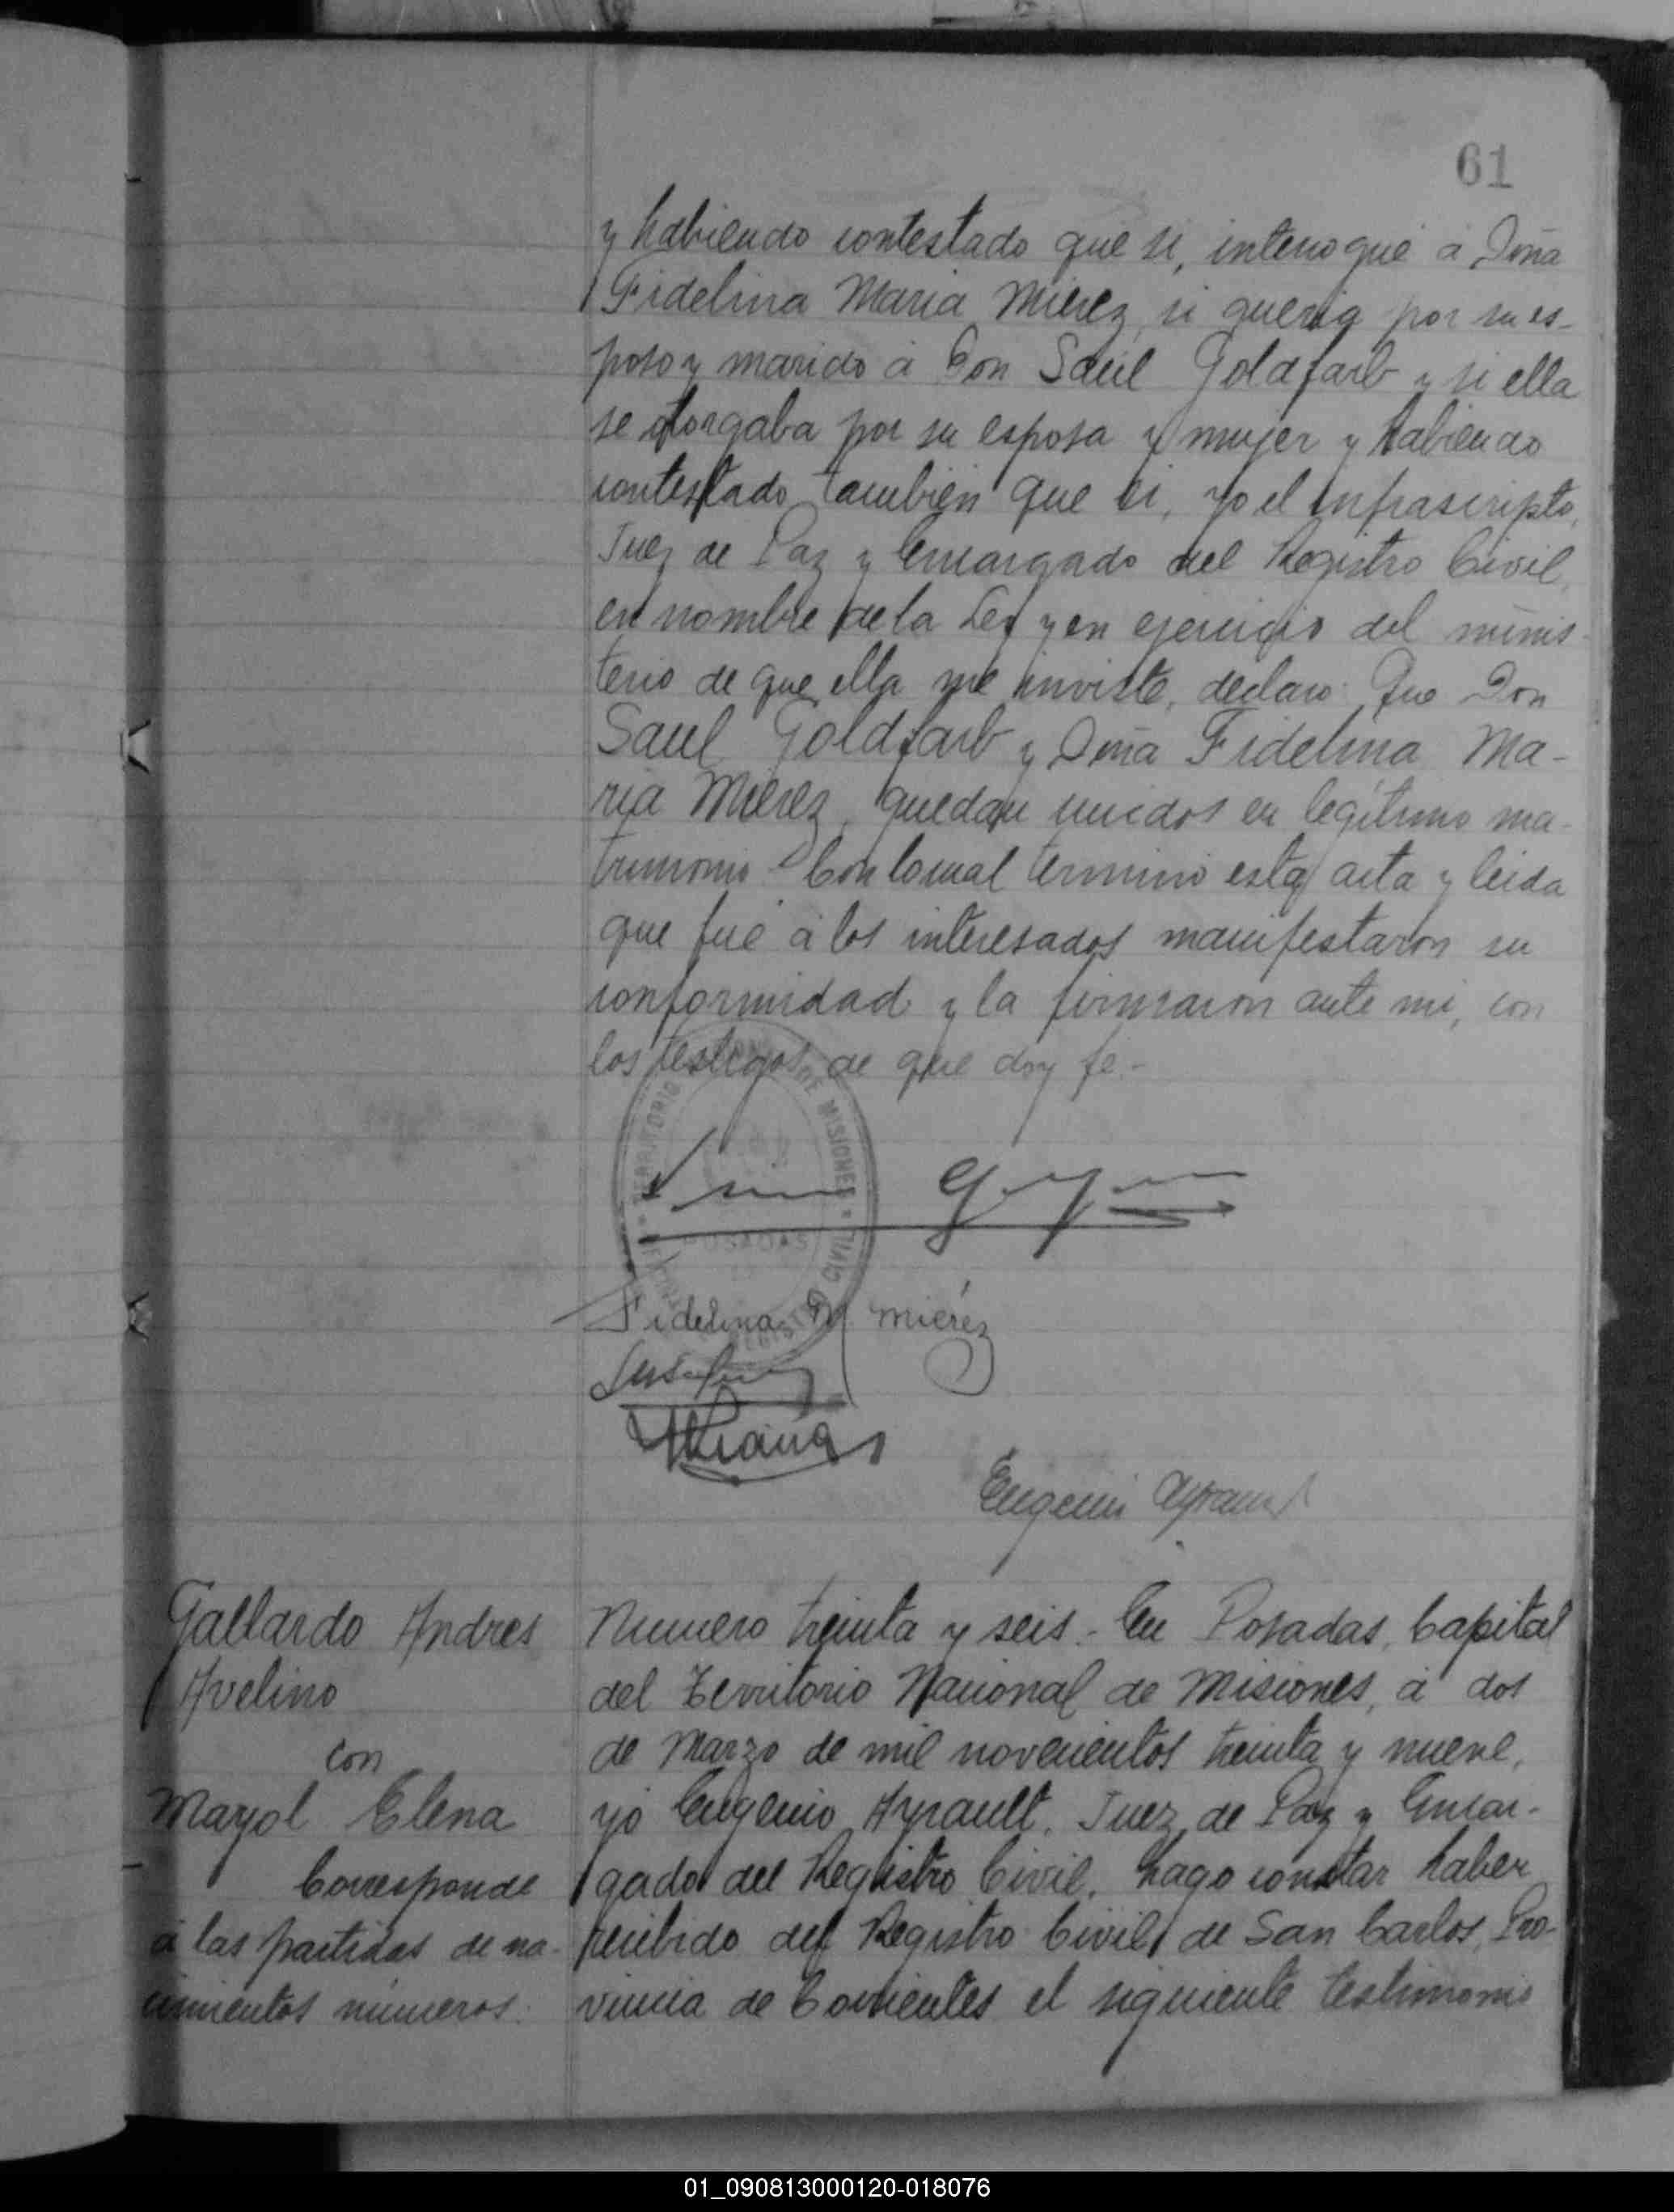 61
y habiendo contestado que si, interrogué á Doña
Fidelina Maria Mierez, si queria por su es-
poso y marido á Don Saúl Goldfarb y si ella
se otorgaba por su esposa y mujer y habiendo
contestado también que si, yo el infrascripto,
Juez de Paz y Encargado del Registro Civil,
en nombre de la Ley y en ejercicio del minis-
terio de que ella me inviste, declaro: Que Don
Saul Goldfarb y Doña Fidelina Ma-
ria Mierez, quedan unidos en legítimo ma-
trimonio - Con lo cual terminó esta acta y leida
que fué á los interesados manifestaron su
conformidad y la firmaron ante mi, con
los testigos de que doy fe.-
TERRITORIO NACIONAL DE MISIONES
POSADAS
REGISTRO CIVIL
Fidelina M. Miérez
Eugenio Ayrault
Gallardo Andres
Avelino
con
Mayol Elena
Corresponde
á las partidas de na-
cimientos números:
Numero treinta y seis.- En Posadas, Capital
del Territorio Nacional de Misiones, á dos
de Marzo de mil novecientos treinta y nueve,
yo Eugenio Ayrault, Juez de Paz y Encar-
gado del Registro Civil, hago constar haber
recibido del Registro Civil de San Carlos, Pro-
vincia de Corrientes el siguiente testimonio
01_090813000120-018076